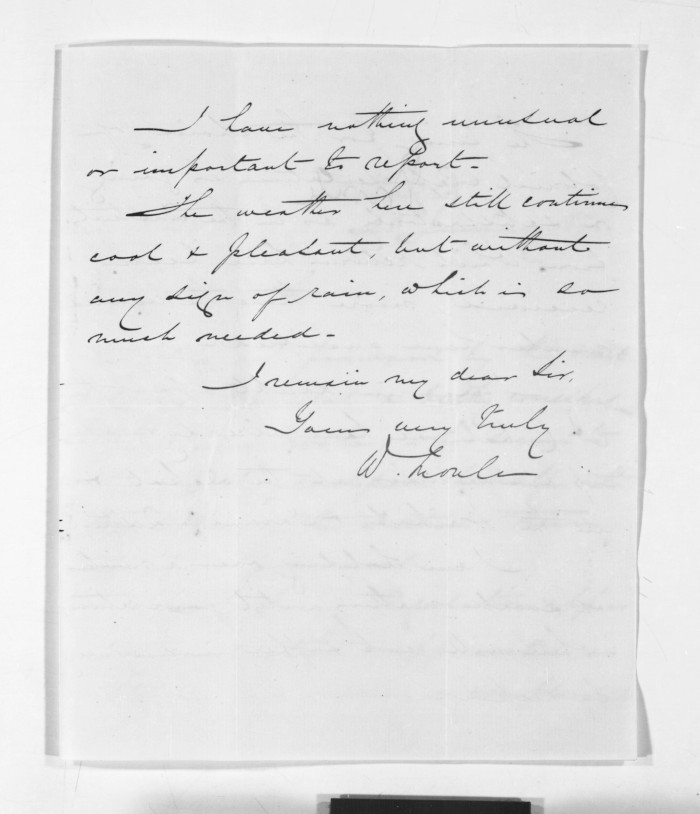 I have nothing unusual
or important to report-
The weather here still continues
cool & pleasant, but without
any sign of rain, which is so
much needed-
I remain my dear Sir,
Yours very truly
W.